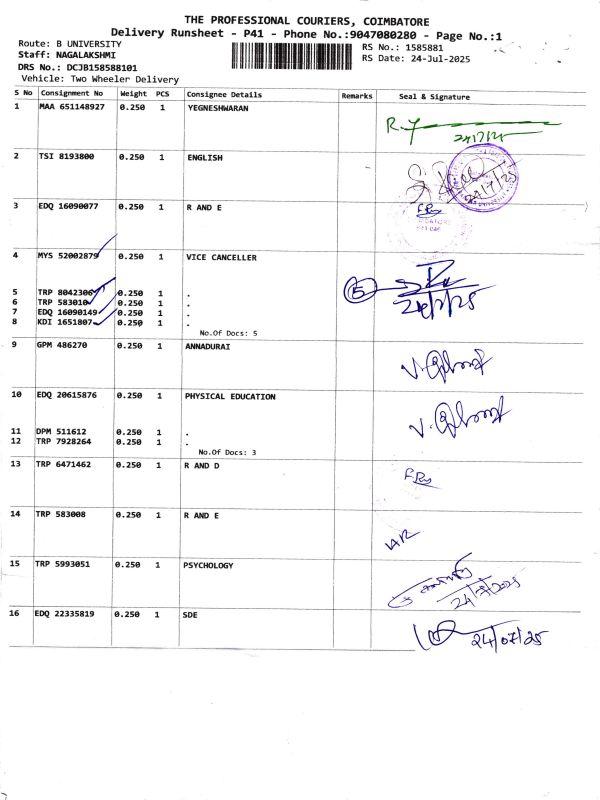 THE PROFESSIONAL COURIERS, COIMBATORE
Delivery Runsheet - P41 - Phone No.:9047080280 - Page No.:1
Route: B UNIVERSITY
Staff: NAGALAKSHMI
DRS No.: DCJB158588101
Vehicle: Two Wheeler Delivery
RS No.: 1585881
RS Date: 24-Jul-2025
S No Consignment No Weight PCS Consignee Details Remarks Seal & Signature
1 MAA 651148927 0.250 1 YEGNESHWARAN
24/7/25
2 TSI 8193800 0.250 1 ENGLISH
24/7/25
3 EDQ 16090077 0.250 1 R AND E
4 MYS 52002879 0.250 1 VICE CANCELLER
5
5 TRP 8042306 0.250 1 .
6 TRP 583010 0.250 1 .
7 EDQ 16090149 0.250 1 .
8 KDI 1651807 0.250 1 .
No.Of Docs: 5
9 GPM 486270 0.250 1 ANNADURAI
10 EDQ 20615876 0.250 1 PHYSICAL EDUCATION
11 DPM 511612 0.250 1 .
12 TRP 7928264 0.250 1 .
No.Of Docs: 3
13 TRP 6471462 0.250 1 R AND D
14 TRP 583008 0.250 1 R AND E
15 TRP 5993051 0.250 1 PSYCHOLOGY
24/7/2025
16 EDQ 22335819 0.250 1 SDE
24/07/25